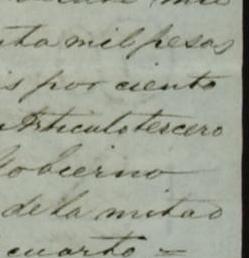 mil
ta mil pesos
is por ciento
Articulo tercero
Gobierno
de la mitad
cuarto =